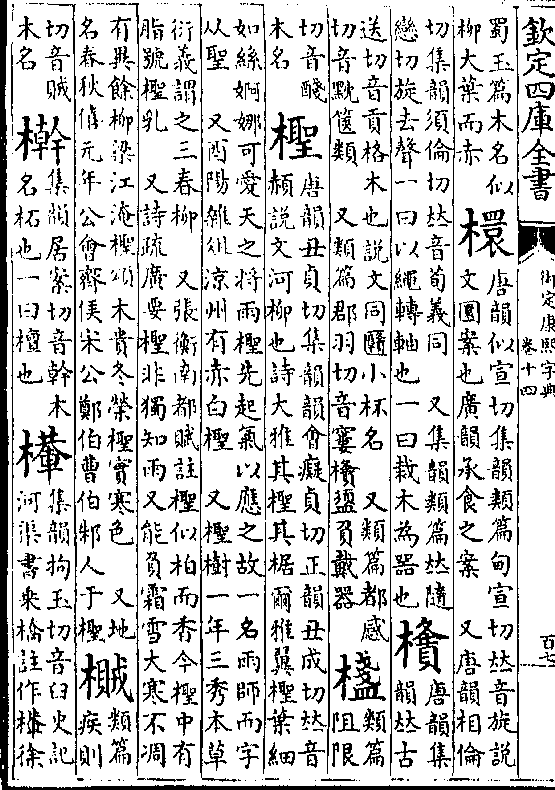 欽定四庫全書
御定康熙字典
卷十四
百七
蜀玉篇木名似
柳大葉而赤
檈
唐韻似宣切集韻類篇旬宣切𠀤音旋說
文圜案也廣韻承食之案 又唐韻相倫
切集韻須倫切𠀤音荀義同 又集韻類篇𠀤隨
戀切旋去聲一曰以繩轉軸也一曰栽木為器也
㯯
唐韻集
韻𠀤古
送切音貢格木也說文同匵小杯名 又類篇都感
切音黕篋類 又類篇郡羽切音窶㯯盨負戴器
類篇
阻限
切音醆
木名
檉
唐韻丑貞切集韻韻會癡貞切正韻丑成切𠀤音
赬說文河柳也詩大雅其檉其椐爾雅翼檉葉細
如絲婀娜可愛天之將雨檉先起氣以應之故一名雨師而字
从聖 又酉陽雜俎涼州有赤白檉 又檉樹一年三秀本草
衍義謂之三春柳 又張衡南都賦註檉似柏而香今檉中有
脂號檉乳 又詩疏廣要檉非獨知雨又能負霜雪大寒不凋
有異餘柳梁江淹檉頌木貴冬榮檉實寒色 又地
名春秋僖元年公會齊侯宋公鄭伯曹伯邾人于檉
類篇
疾則
切音賊
木名
檊
集韻居案切音幹木
名柘也一曰檀也
檋
集韻拘玉切音臼史記
河渠書乘橋註作檋徐